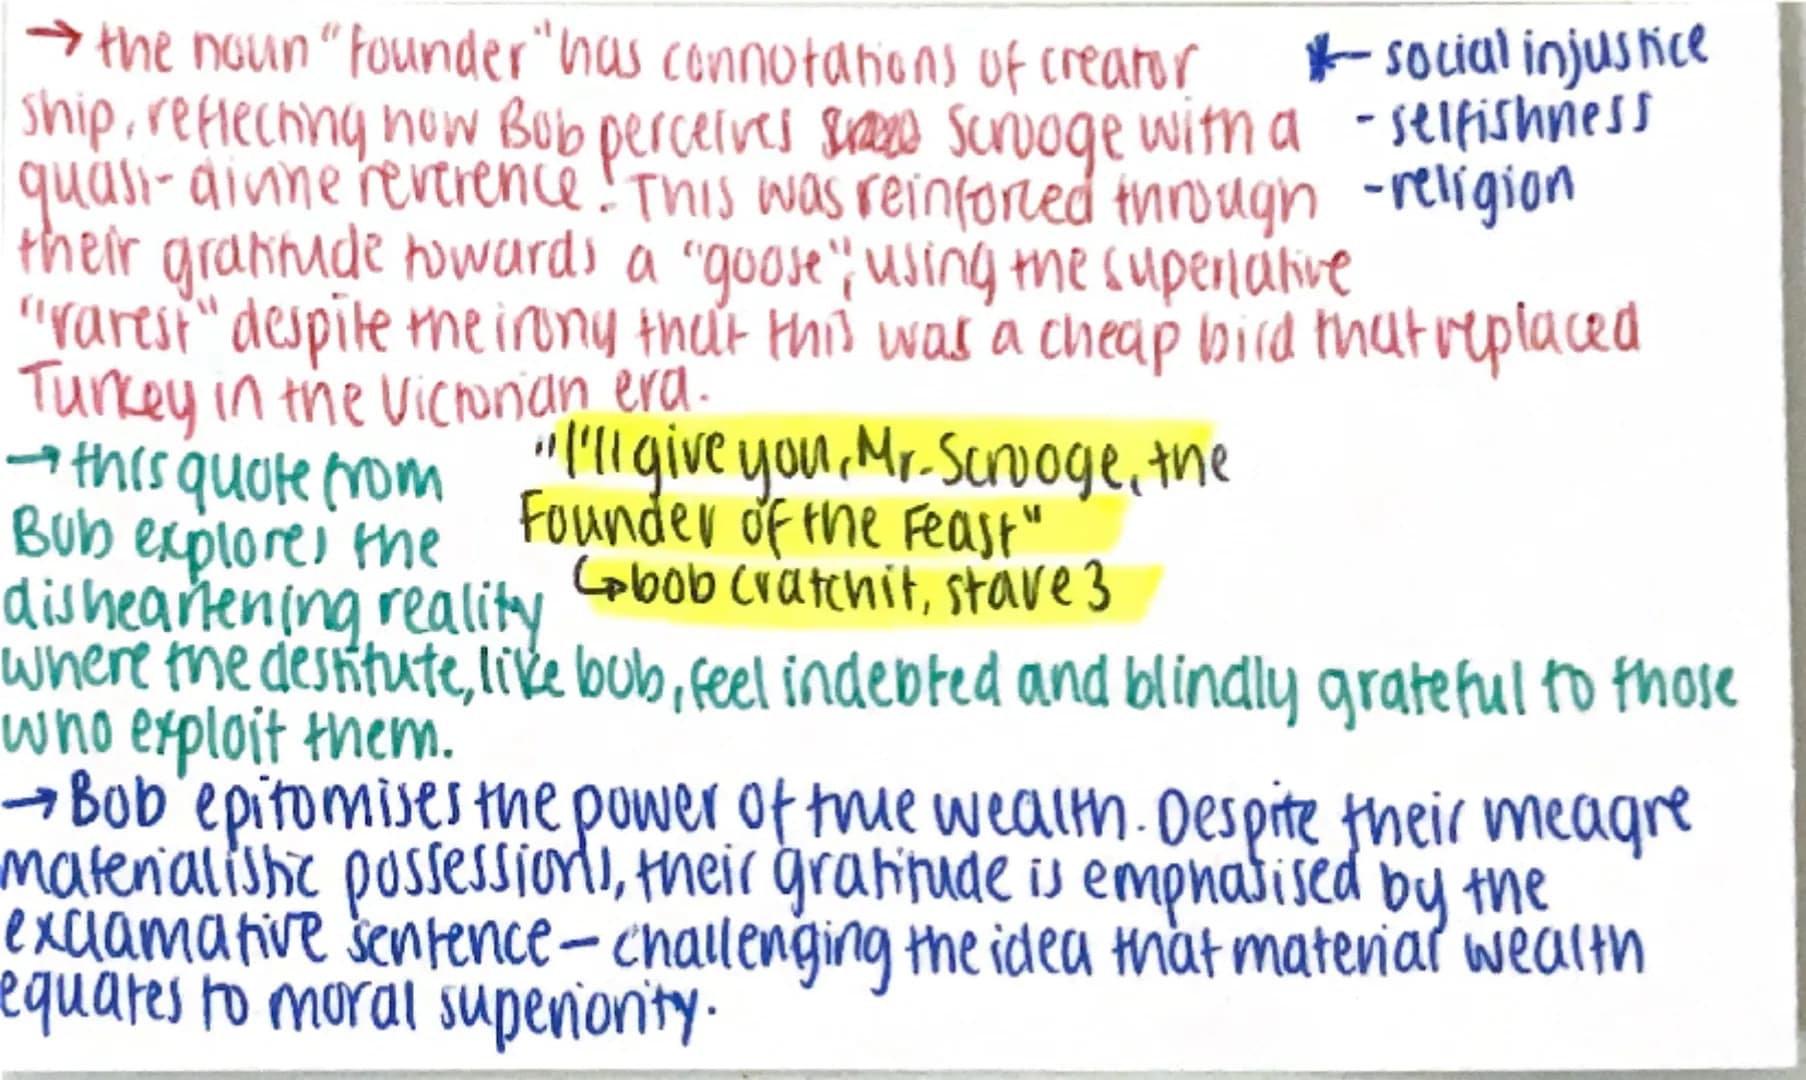 → the noun "Founder" has connotations of creator
ship, reflecting how Bob perceives Scrooge with a
quasi-divine reverence. This was reinforced through
their gratitude towards a "goose", using the superlative
"rarest" despite the irony that this was a cheap bird that replaced
Turkey in the Victorian era.
← social injustice
- selfishness
- religion
"I'll give you, Mr. Scrooge, the
Founder of the Feast"
↳ bob Cratchit, stave 3
→ this quote from
Bob explores the
disheartening reality
where the destitute, like bob, feel indebted and blindly grateful to those
who exploit them.
→ Bob epitomises the power of true wealth. Despite their meagre
materialistic possessions, their gratitude is emphasised by the
exclamative sentence – challenging the idea that material wealth
equates to moral superiority.